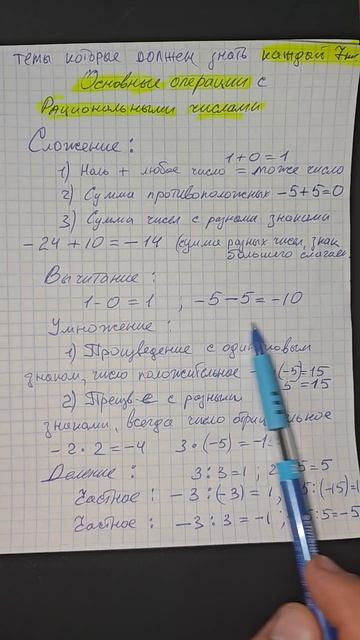 темы которые должен знать каждый 7
Основные операции с
Рациональными числами
Сложение:
1+0=1
1) Ноль + любое число = тоже число
2) Сумма противоположных -5+5=0
3) Сумма чисел с разными знаками
-24+10=-14 (сумма разных чисел, знак
большего слагаем
Вычитание:
1-0=1 ; -5-5=-10
Умножение:
1) Произведение с одинаковым
знаком, число положительное (-5)=15
5=15
2) Произв-е с разными
знаками, всегда число отрицательное
-2·2=-4 3·(-5)=-1
Деление: 3:3=1 ; 5=5
Частное: -3:(-3)=1 ; 5:(-15)=1
Частное: -3:3=-1 ; 5:5=-5